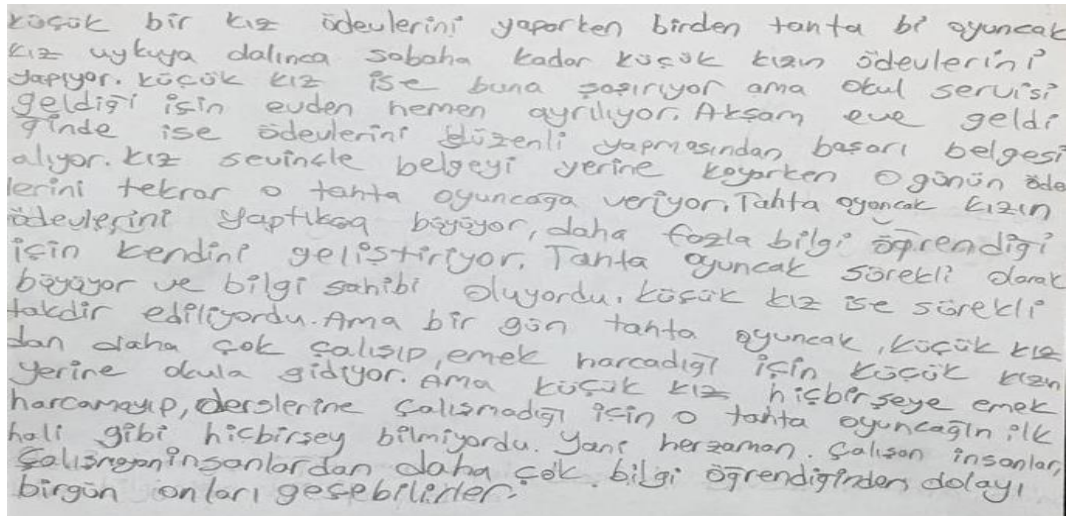 küçük bir kız ödevlerini yaparken birden tahta bi oyuncak
kız uykuya dalınca sabaha kadar küçük kızın ödevlerini
yapıyor. küçük kız ise buna şaşırıyor ama okul servisi
geldiği için evden hemen ayrılıyor. Akşam eve geldi
ğinde ise ödevlerini düzenli yapmasından başarı belgesi
alıyor. kız sevinçle belgeyi yerine koyarken o günün öde
lerini tekrar o tahta oyuncağa veriyor. Tahta oyuncak kızın
ödevlerini yaptıkça büyüyor, daha fazla bilgi öğrendiği
için kendini geliştiriyor. Tahta oyuncak sürekli olarak
büyüyor ve bilgi sahibi oluyordu. küçük kız ise sürekli
takdir ediliyordu. Ama bir gün tahta oyuncak, küçük kız
dan daha çok çalışıp, emek harcadığı için küçük kızın
yerine okula gidiyor. Ama küçük kız hiçbirşeye emek
harcamayıp, derslerine çalışmadığı için o tahta oyuncağın ilk
hali gibi hiçbirşey bilmiyordu. Yani herzaman çalışan insanlar,
çalışmayan insanlardan daha çok bilgi öğrendiğinden dolayı
birgün onları geçebilirler.